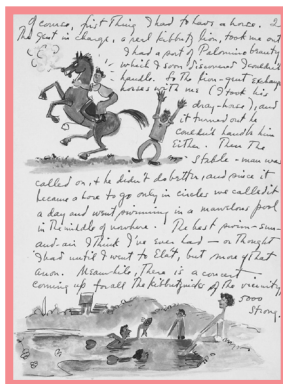 Of course, first thing I had to have a horse. I
The gent in charge, a real kibbutz hiron, took me out
I had a sort of Palomino beauty
which I soon discovered I couldn't
handle. So the hiron-gent exchanged
horses with me (I took his
dray-horse), and
it turned out he
couldn't handle him
either. Then the
stable-man was
called on, & he didn't do better, and since it
became a horse to go only in circles we called it
a day and went swimming in a marvelous pool
in the middle of nowhere. The best swim-sun-
and-air I think I've ever had — or thought
I had until I went to Elat, but more of that
anon. Meanwhile, there is a concert
coming up for all the kibbutzniks of the vicinity,
5000
strong.